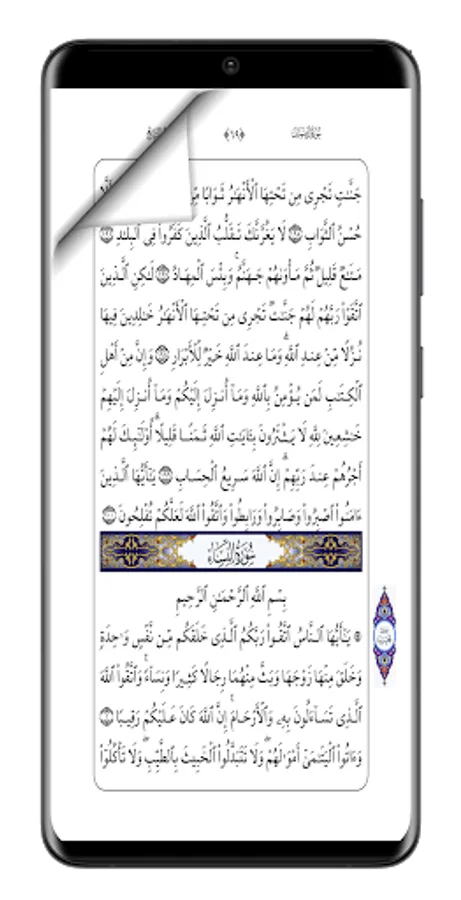 جَنَّٰتٍ تَجْرِى مِن تَحْتِهَا ٱلْأَنْهَٰرُ ثَوَابًا
حُسْنُ ٱلثَّوَابِ لَا يَغُرَّنَّكَ تَقَلُّبُ ٱلَّذِينَ كَفَرُوا۟ فِى ٱلْبِلَٰدِ
مَتَٰعٌ قَلِيلٌ ثُمَّ مَأْوَىٰهُمْ جَهَنَّمُ ۚ وَبِئْسَ ٱلْمِهَادُ لَٰكِنِ ٱلَّذِينَ
ٱتَّقَوْا۟ رَبَّهُمْ لَهُمْ جَنَّٰتٌ تَجْرِى مِن تَحْتِهَا ٱلْأَنْهَٰرُ خَٰلِدِينَ فِيهَا
نُزُلًا مِّنْ عِندِ ٱللَّهِ ۗ وَمَا عِندَ ٱللَّهِ خَيْرٌ لِّلْأَبْرَارِ وَإِنَّ مِنْ أَهْلِ
ٱلْكِتَٰبِ لَمَن يُؤْمِنُ بِٱللَّهِ وَمَآ أُنزِلَ إِلَيْكُمْ وَمَآ أُنزِلَ إِلَيْهِمْ
خَٰشِعِينَ لِلَّهِ لَا يَشْتَرُونَ بِـَٔايَٰتِ ٱللَّهِ ثَمَنًا قَلِيلًا ۗ أُو۟لَٰٓئِكَ لَهُمْ
أَجْرُهُمْ عِندَ رَبِّهِمْ ۗ إِنَّ ٱللَّهَ سَرِيعُ ٱلْحِسَابِ يَٰٓأَيُّهَا ٱلَّذِينَ
ءَامَنُوا۟ ٱصْبِرُوا۟ وَصَابِرُوا۟ وَرَابِطُوا۟ وَٱتَّقُوا۟ ٱللَّهَ لَعَلَّكُمْ تُفْلِحُونَ
سُورَةُ النِّسَاءِ
بِسْمِ ٱللَّهِ ٱلرَّحْمَٰنِ ٱلرَّحِيمِ
يَٰٓأَيُّهَا ٱلنَّاسُ ٱتَّقُوا۟ رَبَّكُمُ ٱلَّذِى خَلَقَكُم مِّن نَّفْسٍ وَٰحِدَةٍ
وَخَلَقَ مِنْهَا زَوْجَهَا وَبَثَّ مِنْهُمَا رِجَالًا كَثِيرًا وَنِسَآءً ۚ وَٱتَّقُوا۟ ٱللَّهَ
ٱلَّذِى تَسَآءَلُونَ بِهِۦ وَٱلْأَرْحَامَ ۚ إِنَّ ٱللَّهَ كَانَ عَلَيْكُمْ رَقِيبًا
وَءَاتُوا۟ ٱلْيَتَٰمَىٰٓ أَمْوَٰلَهُمْ ۖ وَلَا تَتَبَدَّلُوا۟ ٱلْخَبِيثَ بِٱلطَّيِّبِ ۖ وَلَا تَأْكُلُوٓا۟